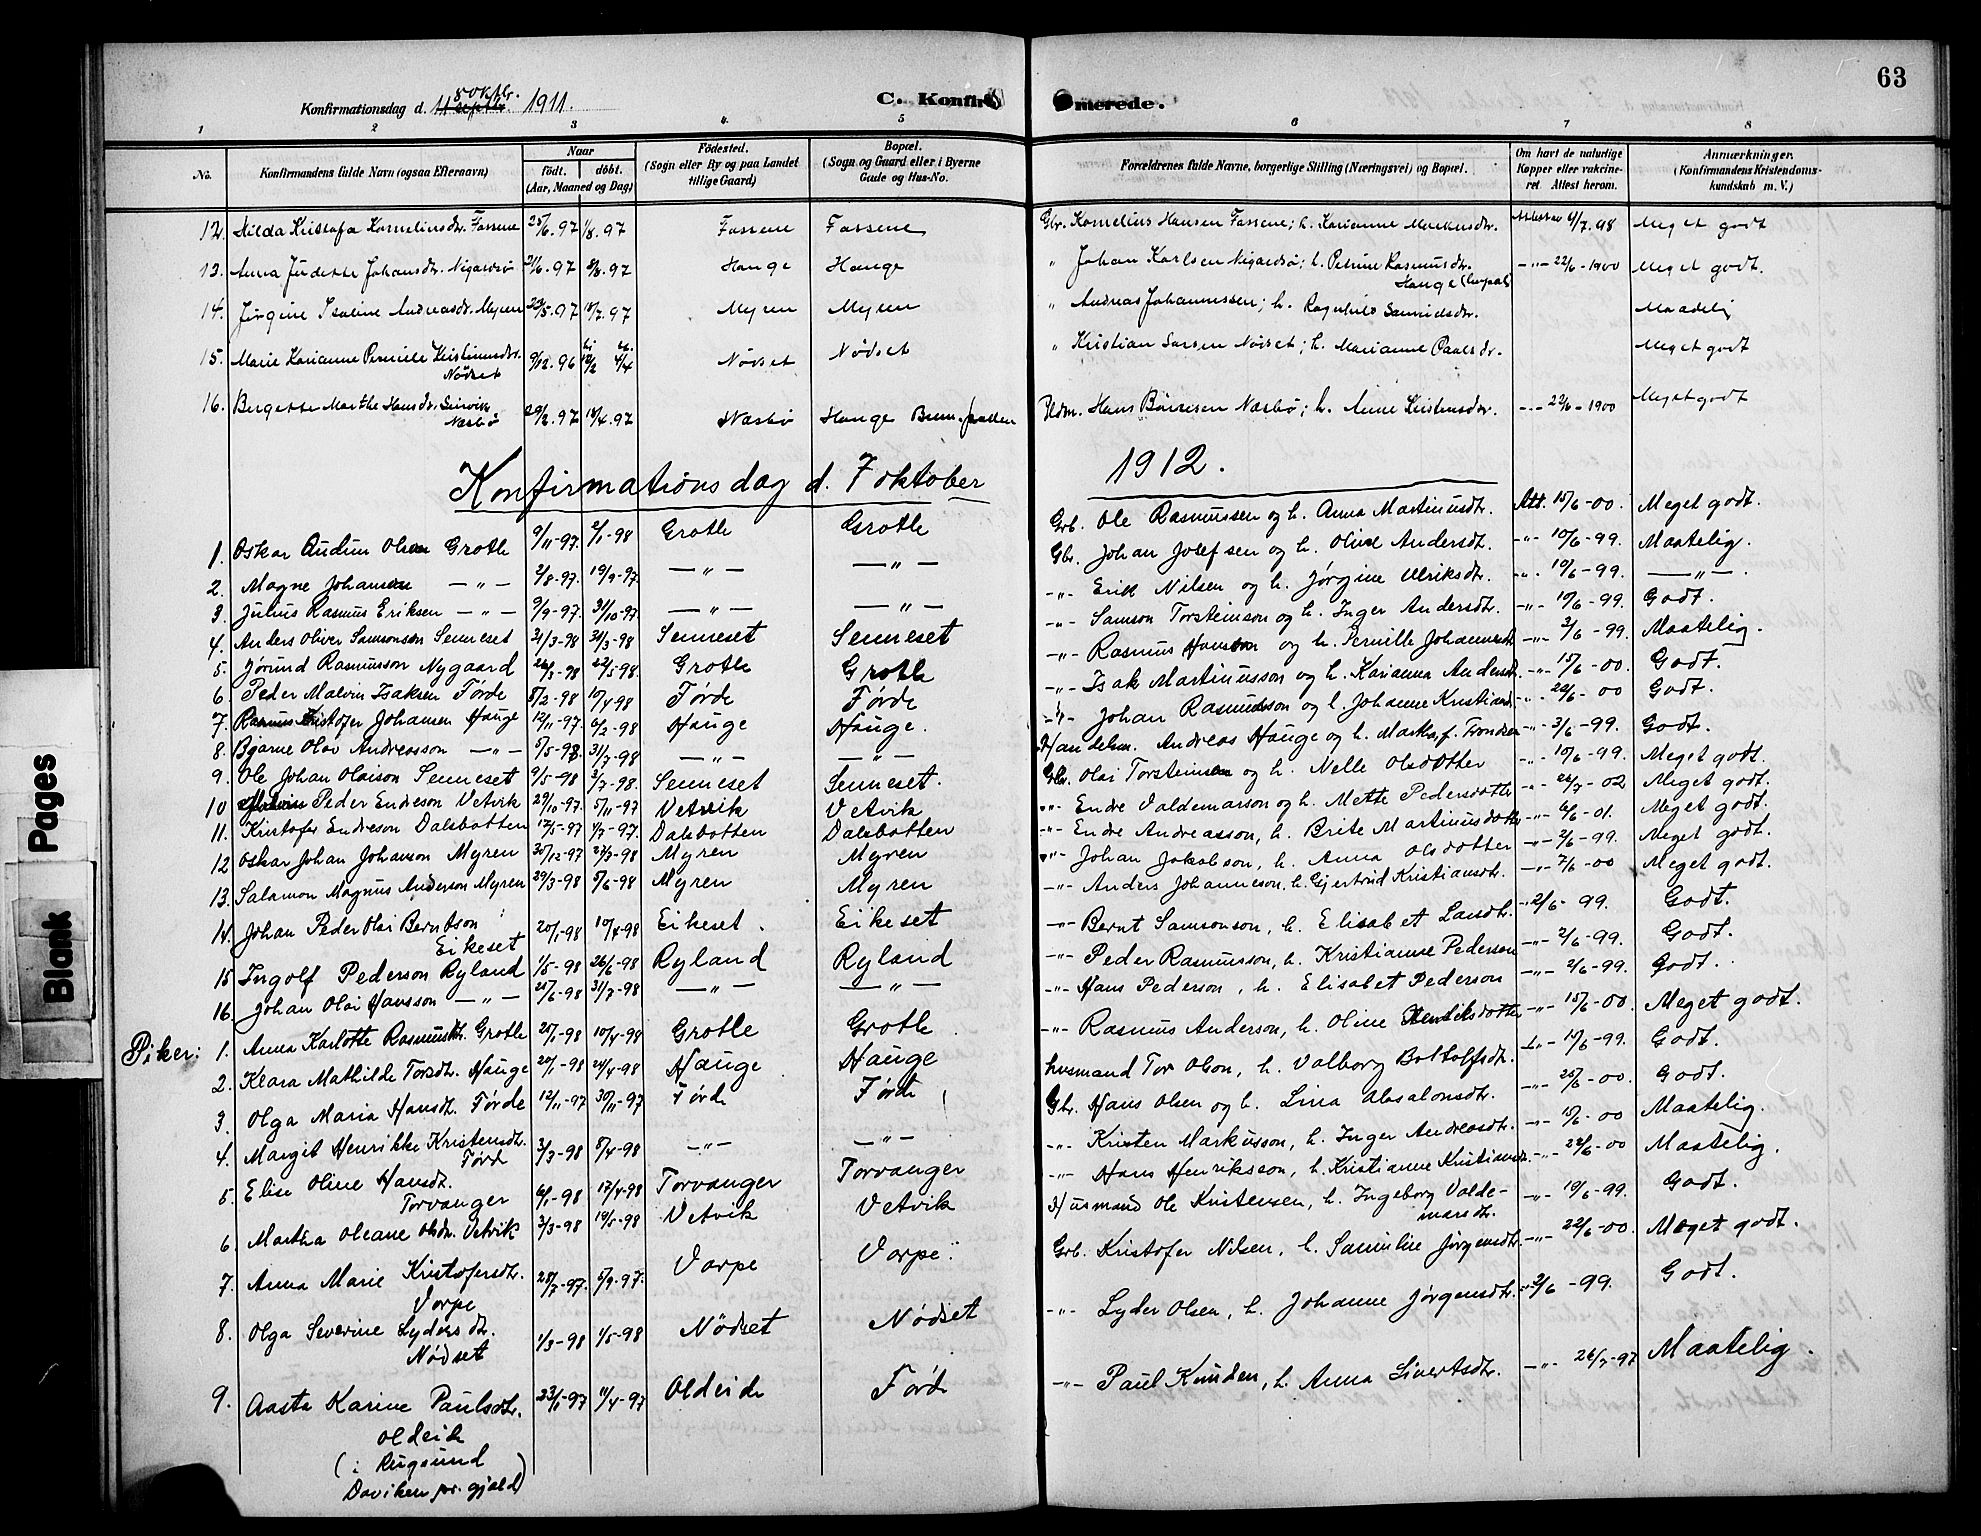 63
8 oktbr.
Konfirmationsdag d. 11 septbr. 1911. C. Konfir merede.
1 2 3 4 5 6 7 8
No. Konfirmandens fulde Navn (ogsaa Efternavn) Naar født. døbt. (Aar, Maaned og Dag) Fødested. (Sogn eller By og paa Landet tillige Gaard) Bopæl. (Sogn og Gaard eller i Byerne Gade og Hus-No. Forældrenes fulde Navne, borgerlige Stilling (Næringsvei) og Bopæl. Om havt de naturlige Kopper eller vakcineret. Attest herom. Anmærkninger. (Konfirmandens Kristendomskundskab m. V.)
12. Hilda Kristofa Korneliusdr. Fassene 25/6. 97 1/8. 97 Fassene Fassene Gbr. Kornelius Hansen Fassene; h. Karianne Markusdr. 4/7. 98 Meget godt
13. Anna Judette Johansdr. Nigardsø 21/6. 97 8/8. 97 Hauge Hauge " Johan Karlsen Nigardsø; h. Petrine Rasmusdr. -"- 22/6 - 1900 Meget godt.
14. Jørgine Isaline Andreasdr. Myren 29/5. 97 18/7. 97 Myren Myren " Andreas Johannessen; h. Ragnhild Samuelsdr. Maadelig
15. Marie Karianne Pernille Kristiansdr. 9/12. 96 4/4 Nødset Nødset " Kristian Larsen Nødset; h. Marianne Paalsdr. Meget godt
Nødset
16. Bergette Marthe Hansdr. 29/2. 97 18/4. 97 Næsbø Hauge Hans Børresen Næsbø; h. Anne Kristensdr. -"- 22/6 - 1900 Meget godt
Næsbø
Konfirmationsdag d. 7 oktober 1912.
1. Oskar Audun Olsen Grotle 9/11-97. 2/1-98 Grotle Grotle Grb. Ole Rasmussen og h. Anna Martinusdtr. Att. 15/6-00. Meget godt.
2. Magne Johansen -"- 2/8-97. 19/9-97. -"- -"- Gbr. Johan Josefsen og h. Oline Andersdt. -"- 10/6-99. Maatelig.
3. Julius Rasmus Eriksen -"- 9/9-97. 31/10-97. -"- -"- -"- Erik Nilsen og h. Jørgine Ulriksdtr. -"- 10/6-99. -"-
4. Anders Oliver Samsonson Senneset 21/3-98 Senneset Senneset -"- Samson Torsteinson og h. Inger Andersdtr. -"- 10/6-99. Godt.
5. Jørund Rasmusson Nygaard 22/5-98. Grotle Grotle -"- Rasmus Hansson og h. Pernille Johannesdt. -"- 3/6-99. Maatelig.
6 Peder Malvin Isaksen Førde 8/2-98 10/4-98 Førde Førde -"- Isak Martinusson og h. Karianna Andersdt. -"- 15/6-00. Godt.
7. Rasmus Kristofer Johansen Hauge 12/11-97. 6/2-98 Hauge Hauge. -"- Johan Rasmusson og h. Johanne Kristiansd. -"- 22/6-00 Godt.
8. Bjarne Olav Andreasson -"- 5/5-98. 31/7-98 -"- -"- Handelsm. Andreas Hauge og h. Trondsen -"- 3/6-99. Godt.
9. Ole Johan Olaison Senneset 9/5-98 3/7-98. Senneset Senneset. Gbr. Olai Torsteinsen og h. Nelle Olsdotter -"- 10/6-99. Meget godt.
10 Peder Endreson Vetvik 29/10-97. 5/11-97 Vetvik Vetvik -"- Endre Valdemarson og h. Mette Pedersdotter -"- 24/7-02 Meget godt.
11. Kristofer Endreson Dalsbotten 17/5-97 1/7-97. Dalsbotten Dalsbotten -"- Endre Andreasson, h. Brite Martinusdotter -"- 6/6-01. Meget godt.
12 Oskar Johan Johanson Myren 30/12-97 27/3-98 Myren Myren -"- Johan Jakobson, h. Anna Olsdotter -"- 2/6-99. Meget godt.
13. Salamon Magnus Anderson Myren 29/3-98 5/6-98 Myren Myren -"- Anders Johanneson, h. Gjertrud Kristiansdt. -"- 7/6-00 Meget godt.
14. Johan Peder Olai Berntson 20/1-98 10/4-98 Eikeset. Eikeset -"- Bernt Samsonson, h. Elisabet Larsdtr. -"- 2/6-99. Godt.
Eikeset
15 Ingolf Pederson Ryland 1/5-98 26/6-98 Ryland Ryland -"- Peder Rasmusson, h. Kristianse Pederson -"- 2/6-99. Godt.
16. Johan Olai Hansson -"- 25/6-98 31/7-98 -"- -"- -"- Hans Pederson, h. Elisabet Pederson -"- 2/6-99. Godt.
Piker: 1. Anna Karlotte Rasmusdt. Grotle 25/1-98 10/4-98 Grotle Grotle -"- Rasmus Anderson, h. Oline Henriksdotter -"- 15/6-00. Meget godt.
2. Klara Mathilde Torsdt. Hauge 20/1-98 24/4-98 Hauge Hauge husmand Tor Olson, h. Valborg Bottolfsdt. 10/6-99. Godt.
3. Olga Maria Hansdt. Førde 12/11-97 30/11-97 Førde Førde Gbr. Hans Olsen og h. Lina Absalonsdt. -"- 25/6-00. Godt.
4. Margit Henrikke Kristensdt. 3/3-98 8/4-98 -"- -"- -"- Kristen Markusson, h. Inger Andreasdt. -"- 15/6-00 Maatelig.
Førde
5. Elise Oline Hansdt. 6/1-98 17/4-98 Torvanger Torvanger -"- Hans Henrikson, h. Kristianne Kristiansdt. -"- 22/6-00 Maatelig.
Torvanger
6. Martha Oleane Olsdr. Vetvik 3/3-98 19/5-98 Vetvik Vetvik Husmand Ole Kristensen, h. Ingeborg Valde- -"- 19/6-99. Godt.
marsdt.
7. Anna Marie Kristofersdt. 25/7-97. 5/9-97. Varpe Varpe Grb. Kristofer Nilsen, h. Samuline Jørgensdt. -"- 22/6-00. Meget godt.
Varpe
8. Olga Severine Lydersdt. 1/3-98 1/5-98 Nødset Nødset -"- Lyder Olsen, h. Johanne Jørgensdt. 2/6-99. Godt.
Nødset
9. Aasta Karine Paulsdtr. 23/1-97 11/4-97 Oldeide Førde -"- Paul Knudsen, h. Anna Sivertsdt. -"- 26/7-97 Maatelig.
Oldeide
(i Rugsund
Daviken pr. gjæld)
Blank Pages